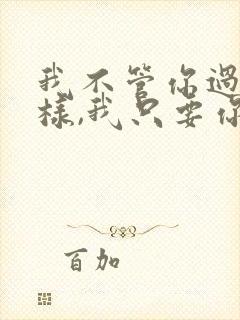 我不管你過
樣,我只要你
百加